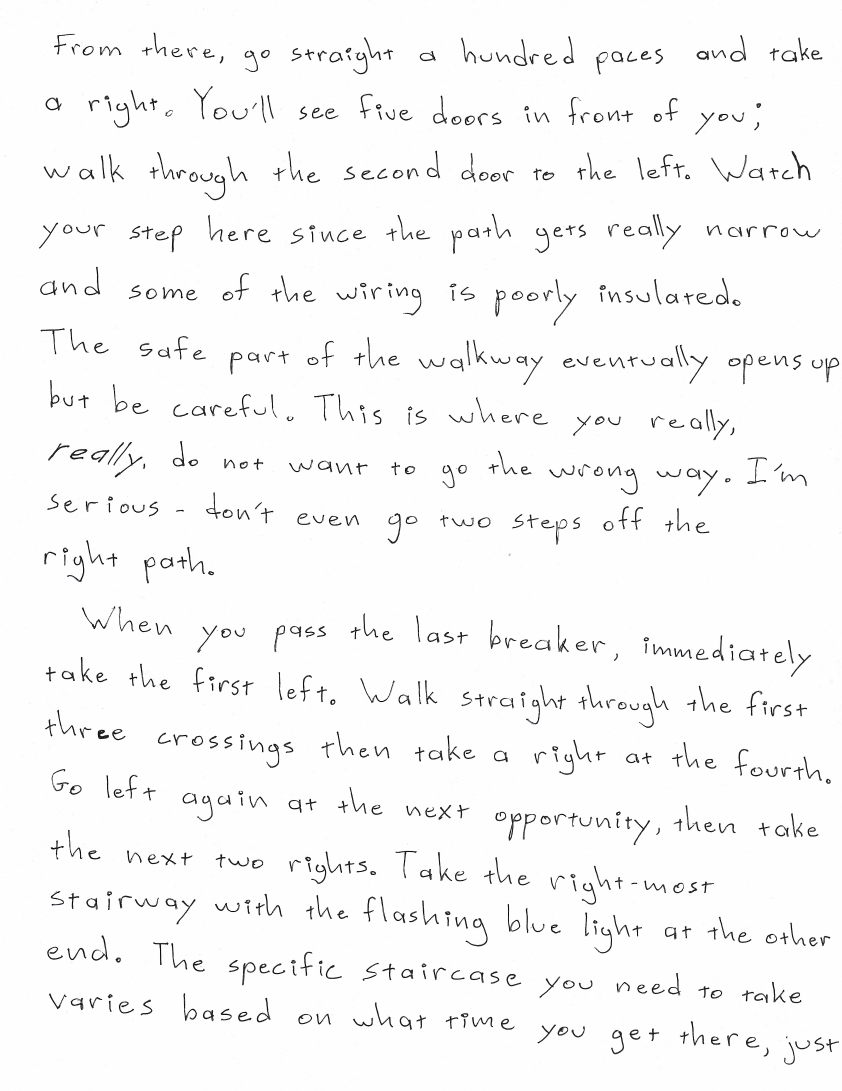 From there, go straight a hundred paces and take
a right. You'll see five doors in front of you;
walk through the second door to the left. Watch
your step here since the path gets really narrow
and some of the wiring is poorly insulated.
The safe part of the walkway eventually opens up
but be careful. This is where you really,
really, do not want to go the wrong way. I'm
serious - don't even go two steps off the
right path.
When you pass the last breaker, immediately
take the first left. Walk straight through the first
three crossings then take a right at the fourth.
Go left again at the next opportunity, then take
the next two rights. Take the right-most
stairway with the flashing blue light at the other
end. The specific staircase you need to take
varies based on what time you get there, just